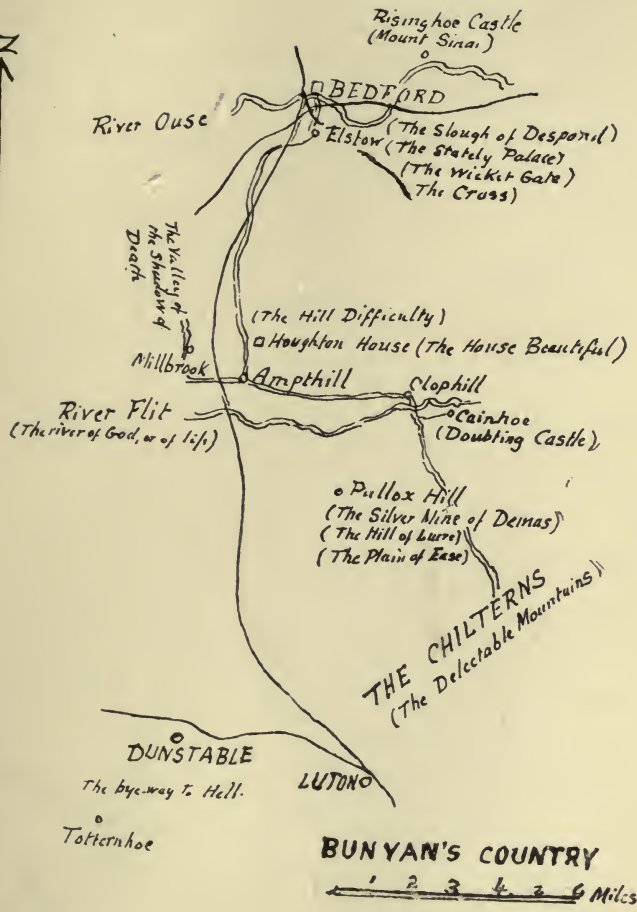 N
Risinghoe Castle
(Mount Sinai)
BEDFORD
River Ouse
Elstow
(The Slough of Despond)
(The Stately Palace)
(The Wicket Gate)
The Cross)
The Valley of
the Shadow of
Death
(The Hill Difficulty)
Houghton House (The House Beautiful)
Millbrook
Ampthill
Clophill
River Flit
(The river of God, or of life)
Cainhoe
(Doubting Castle)
Pullox Hill
(The Silver Mine of Demas)
(The Hill of Lucre)
(The Plain of Ease)
THE CHILTERNS
(The Delectable Mountains)
DUNSTABLE
The bye-way to Hell.
LUTON
Totternhoe
BUNYAN'S COUNTRY
1 2 3 4 5 6 Miles